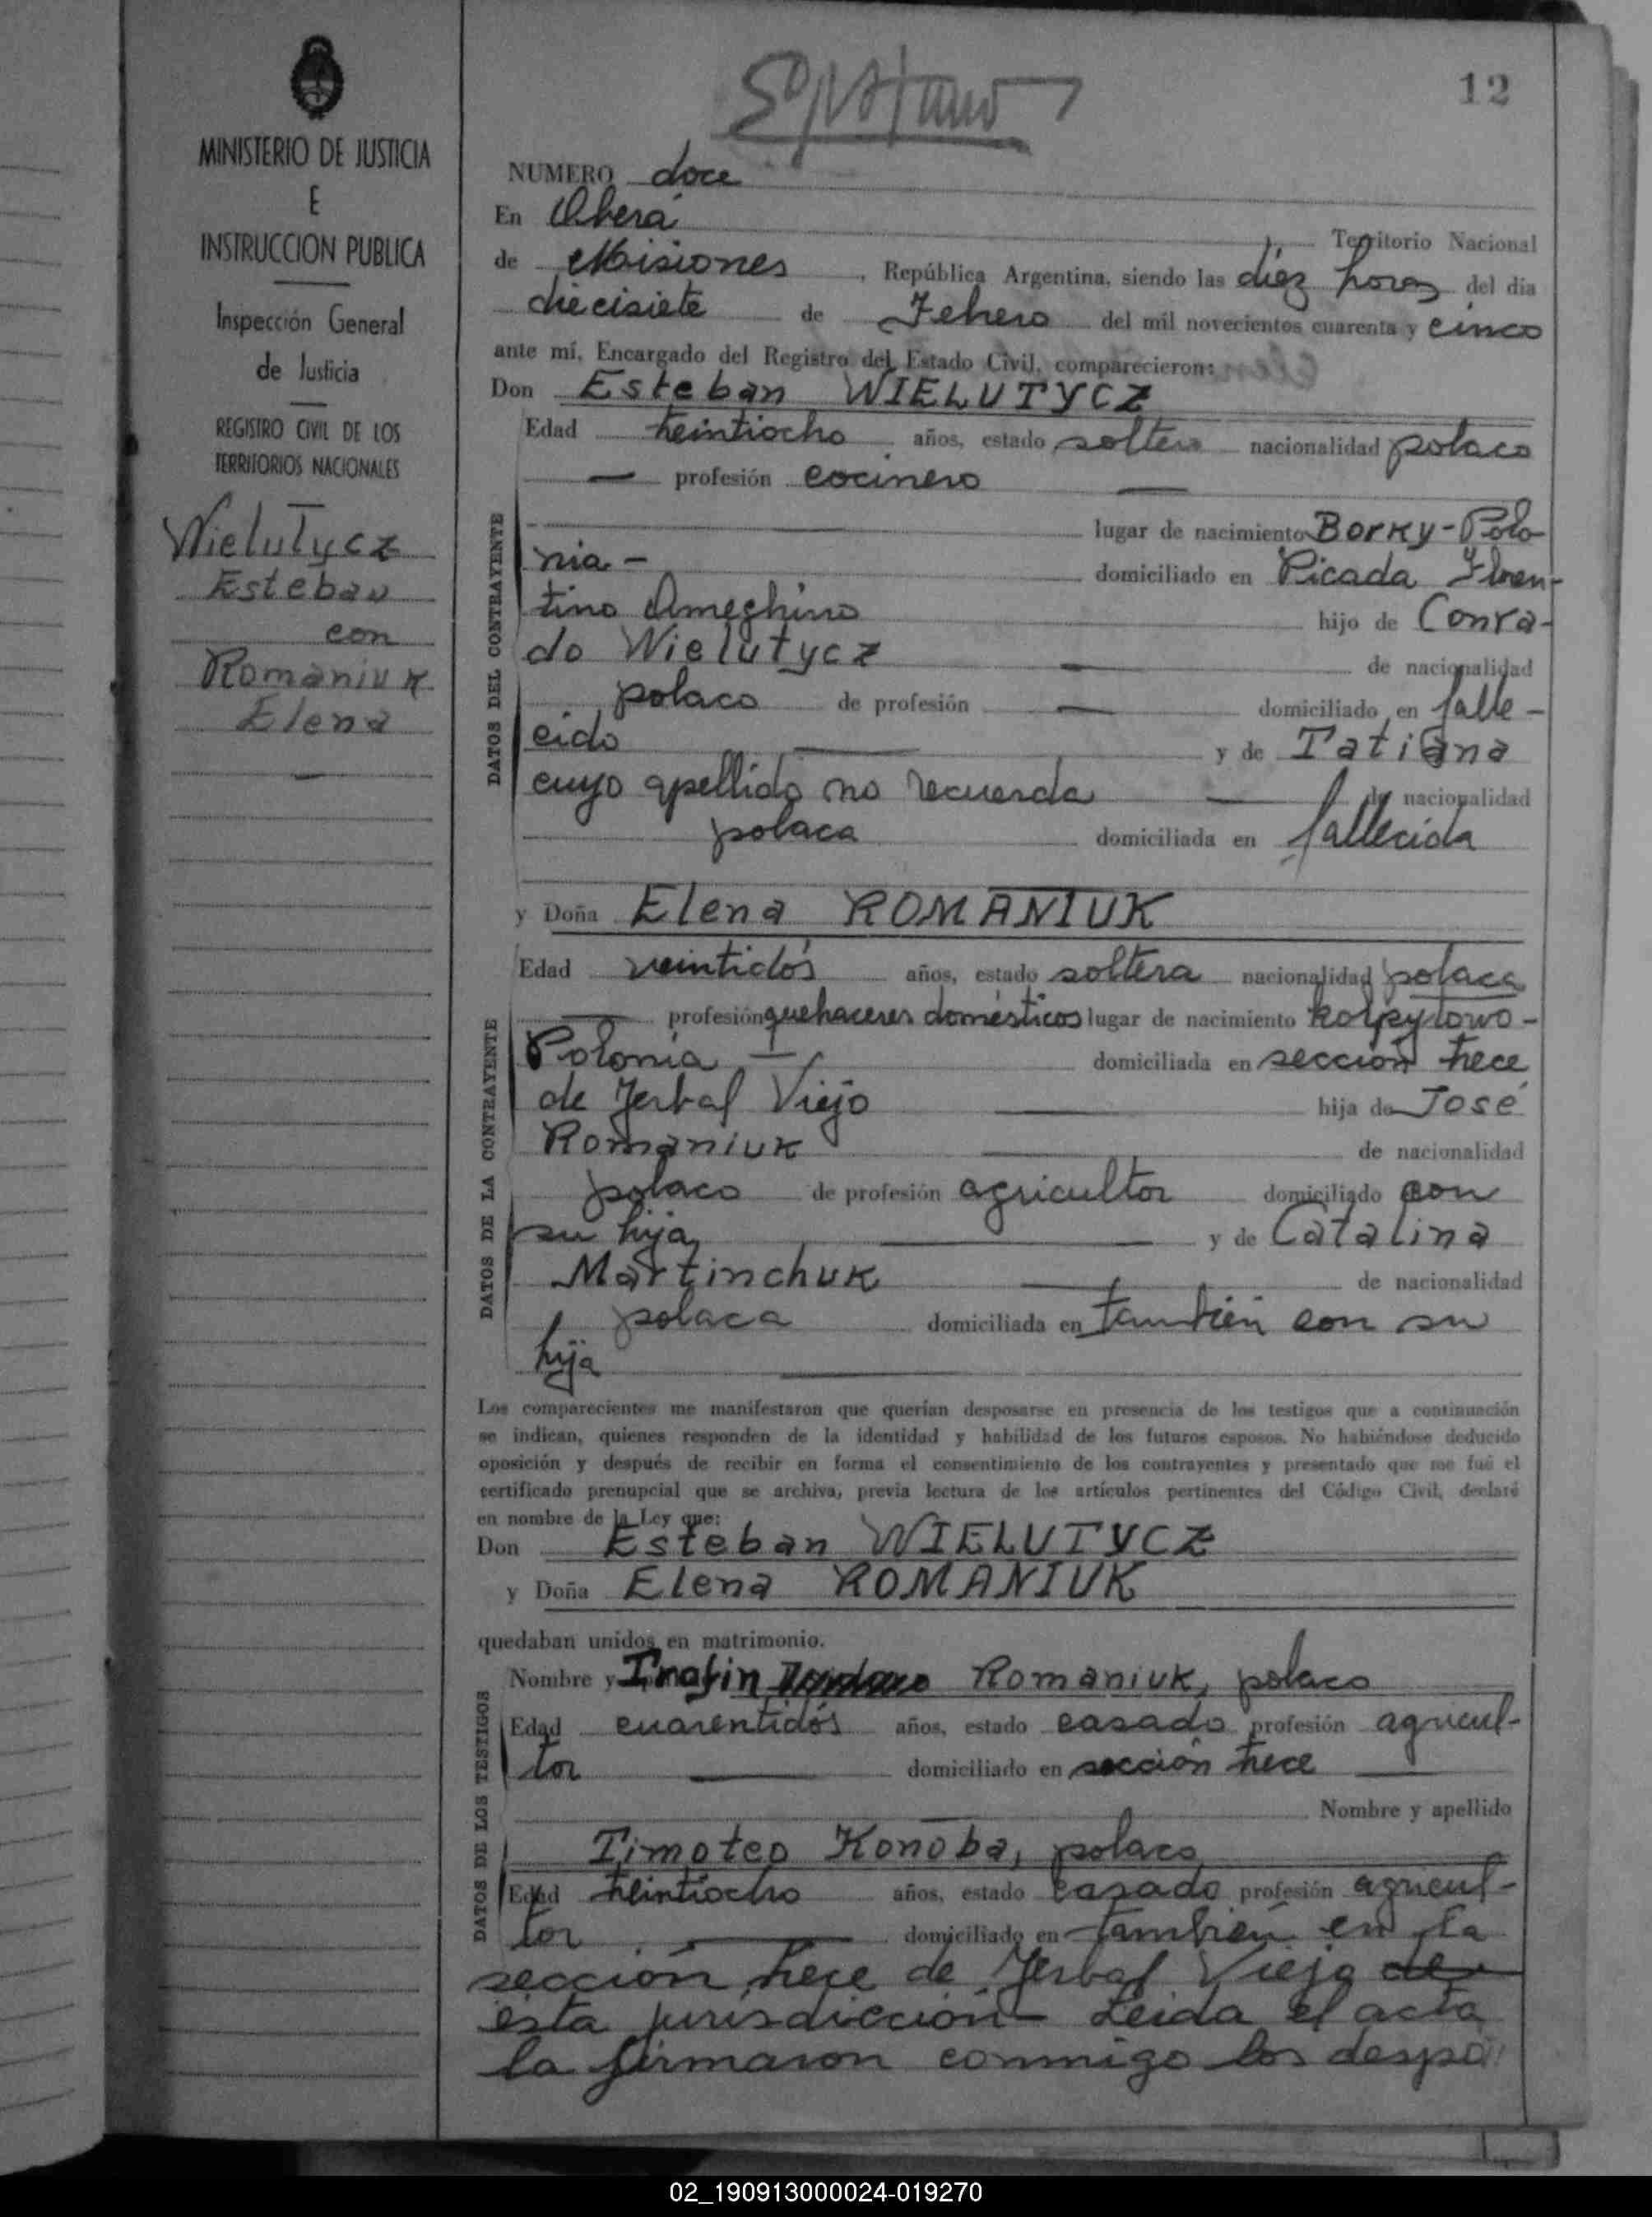 12
MINISTERIO DE JUSTICIA
E
INSTRUCCION PUBLICA
Inspección General
de Justicia
REGISTRO CIVIL DE LOS
TERRITORIOS NACIONALES
Wielutycz
Esteban
con
Romaniuk
Elena
NUMERO doce
En Oberá Territorio Nacional
de Misiones, República Argentina, siendo las diez horas del día
diecisiete de Febrero del mil novecientos cuarenta y cinco
ante mí, Encargado del Registro del Estado Civil, comparecieron:
Don Esteban WIELUTYCZ
Edad treintiocho años, estado soltero nacionalidad polaco
— profesión cocinero —
DATOS DEL CONTRAYENTE
lugar de nacimiento Borky-Polo-
nia- domiciliado en Picada Floren-
tino Ameghino hijo de Conra-
do Wielutycz — de nacionalidad
polaco de profesión — domiciliado en falle-
cido — y de Tatiana
cuyo apellido no recuerda — de nacionalidad
polaca domiciliada en fallecida
y Doña Elena ROMANIUK
Edad veintidós años, estado soltera nacionalidad polaca
DATOS DE LA CONTRAYENTE
— profesión quehaceres domésticos lugar de nacimiento Kolpytowo-
Polonia — domiciliada en sección trece
de Yerbal Viejo — hija de José
Romaniuk — de nacionalidad
polaco de profesión agricultor domiciliado con
su hija — y de Catalina
Martinchuk — de nacionalidad
polaca domiciliada en también con su
hija —
Los comparecientes me manifestaron que querían desposarse en presencia de los testigos que a continuación
se indican, quienes responden de la identidad y habilidad de los futuros esposos. No habiéndose deducido
oposición y después de recibir en forma el consentimiento de los contrayentes y presentado que me fué el
certificado prenupcial que se archiva, previa lectura de los artículos pertinentes del Código Civil, declaré
en nombre de la Ley que:
Don Esteban WIELUTYCZ
y Doña Elena ROMANIUK
quedaban unidos en matrimonio.
DATOS DE LOS TESTIGOS
Nombre y Romaniuk, polaco
Edad cuarentidós años, estado casado profesión agricul-
tor — domiciliado en sección trece —
Nombre y apellido
Timoteo Konoba, polaco
Edad treintiocho años, estado casado profesión agricul-
tor — domiciliado en también en la
sección trece de Yerbal Viejo de
esta jurisdicción- Leida el acta
la firmaron conmigo los despo
02_190913000024-019270